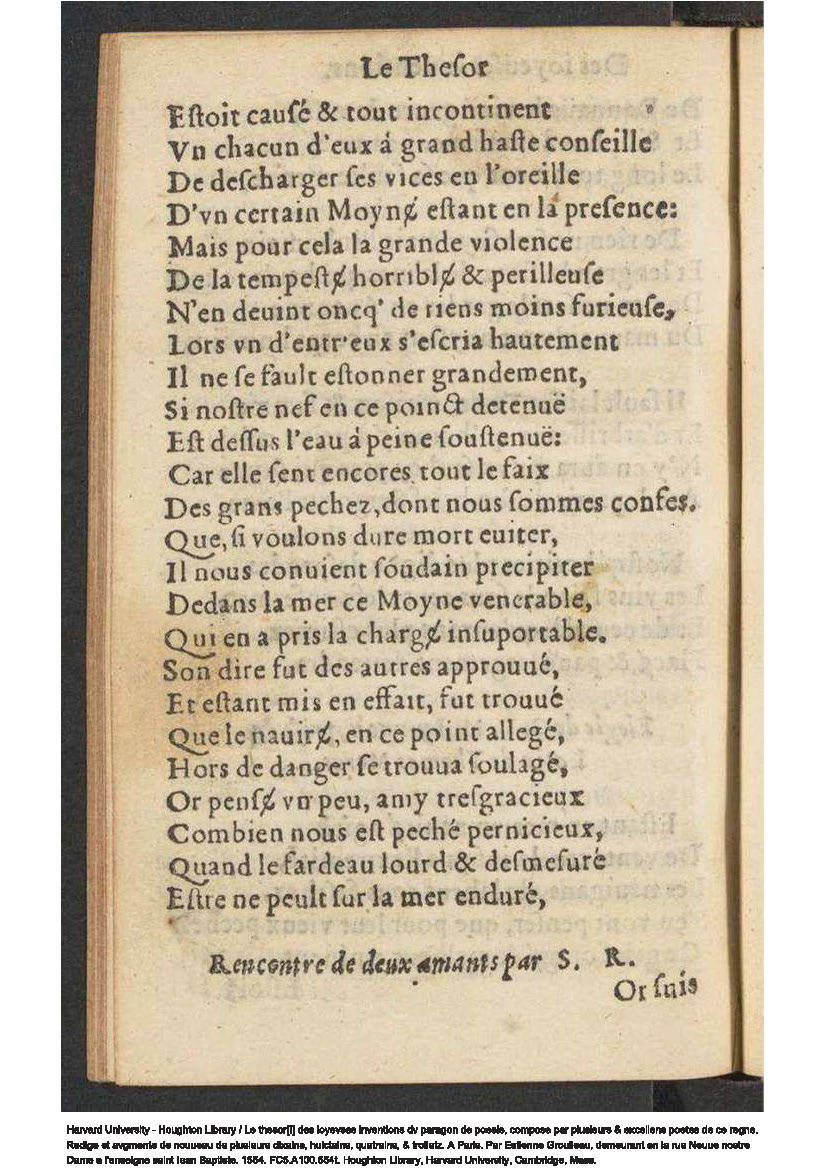 Le Theſor
Eſtoit cauſé & tout incontinent
Vn chacun d'eux á grand haſte conſeille
De deſcharger ſes vices en l'oreille
D'vn certain Moynɇ eſtant en la preſence:
Mais pour cela la grande violence
De la tempeſtɇ horriblɇ & perilleuſe
N'en deuint oncq' de riens moins furieuſe,
Lors vn d'entr'eux s'eſcria hautement
Il ne ſe fault eſtonner grandement,
Si noſtre nef en ce poinct detenuë
Eſt deſſus l'eau á peine ſouſtenuë:
Car elle ſent encores tout le faix
Des grans pechez, dont nous ſommes confes.
Que, ſi voulons dure mort euiter,
Il nous conuient ſoudain precipiter
Dedans la mer ce Moyne venerable,
Qui en a pris la chargɇ inſuportable.
Son dire fut des autres approuué,
Et eſtant mis en effait, fut trouué
Que le nauirɇ, en ce point allegé,
Hors de danger ſe trouua ſoulagé,
Or penſɇ vn peu, amy treſgracieux
Combien nous eſt peché pernicieux,
Quand le fardeau lourd & deſmeſuré
Eſtre ne peult ſur la mer enduré,
Rencontre de deux amants par S. R.
Or ſuis
Harvard University - Houghton Library / Le thesor[i] des ioyevses inventions dv paragon de poesie, compose par plusieurs & excellens poetes de ce regne.
Redige et avgmente de nouueau de plusieurs dixains, huictains, quatrains, & trolletz. A Paris. Par Estienne Groulleau, demeurant en la rue Neuue nostre
Dame a l'enseigne saint Iean Baptiste. 1554. FC5.A100.554t. Houghton Library, Harvard University, Cambridge, Mass.